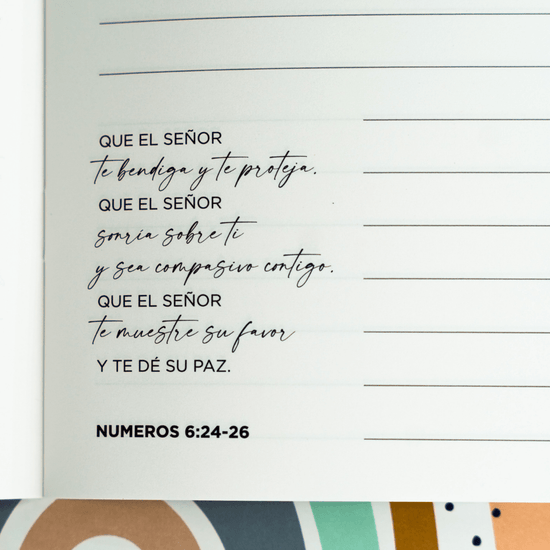 QUE EL SEÑOR
te bendiga y te proteja.
QUE EL SEÑOR
sonria sobre ti
y sea compasivo contigo.
QUE EL SEÑOR
te muestre su favor
Y TE DÉ SU PAZ.
NUMEROS 6:24-26